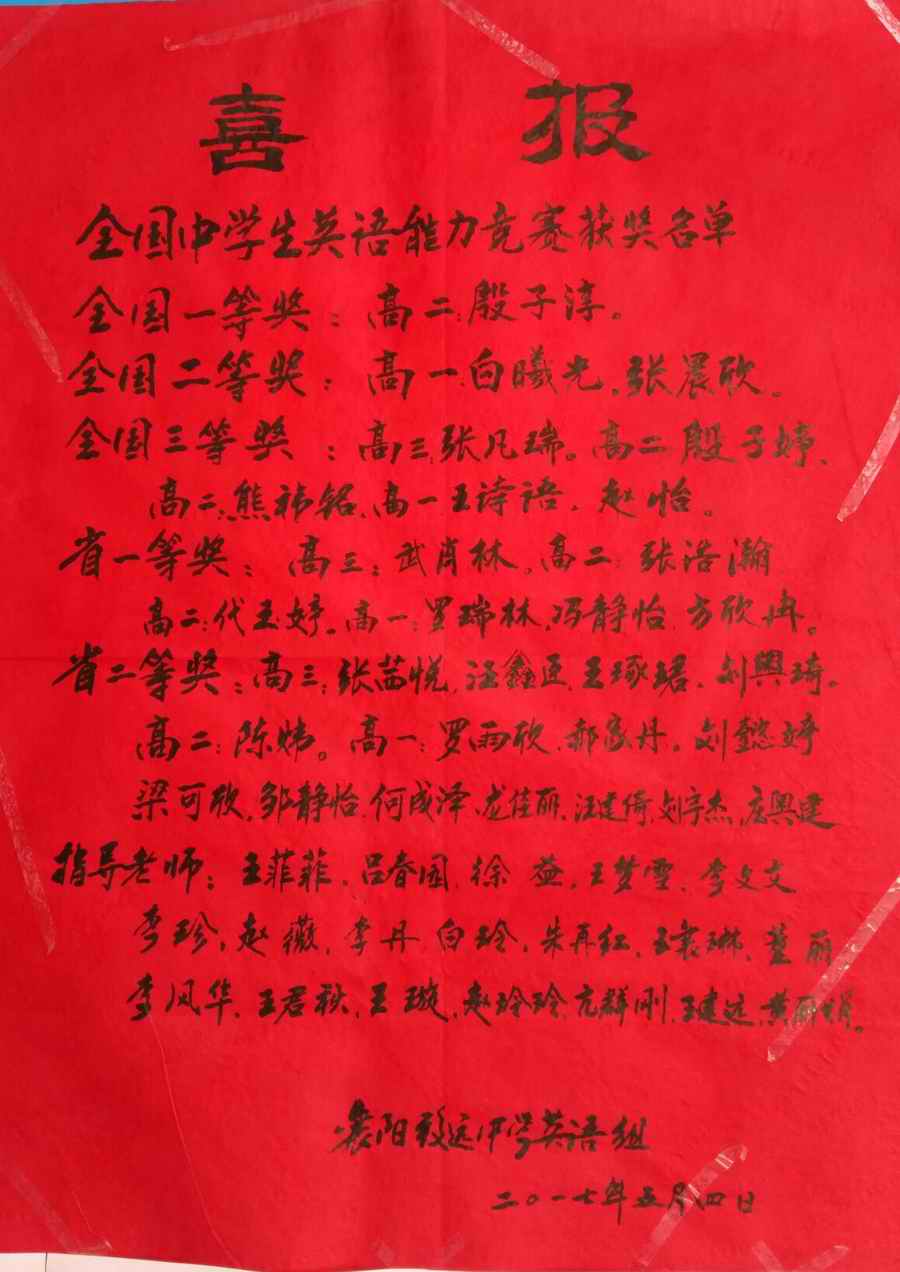 喜报
全国中学生英语能力竞赛获奖名单
全国一等奖：高二：殷子淳。
全国二等奖：高一：白曦光，张晨欣。
全国三等奖：高三：张凡瑞。高二：殷子婷、
高二：熊祎铭、高一王诗语，赵怡。
省一等奖：高三：武肖林。高二：张浩瀚
高二：代玉婷。高一：罗瑞林，冯静怡，方欣冉。
省二等奖：高三：张茜悦，汪鑫臣，王琢珺，刘兴琦。
高二：陈炜。高一：罗雨欣，郝家丹。刘懿婷
梁可欣，邹静怡，何成泽、龙佳丽，汪建倚，刘宇杰，庞兴建
指导老师：王菲菲、吕春园，徐益，王梦雪，李文文
李珍，赵薇，李丹，白玲，朱再红，王襄琳，董丽
李风华，王君秋，王璇，赵玲玲，亢群刚，王建远，黄丽娟。
襄阳致远中学英语组
二〇一七年五月四日